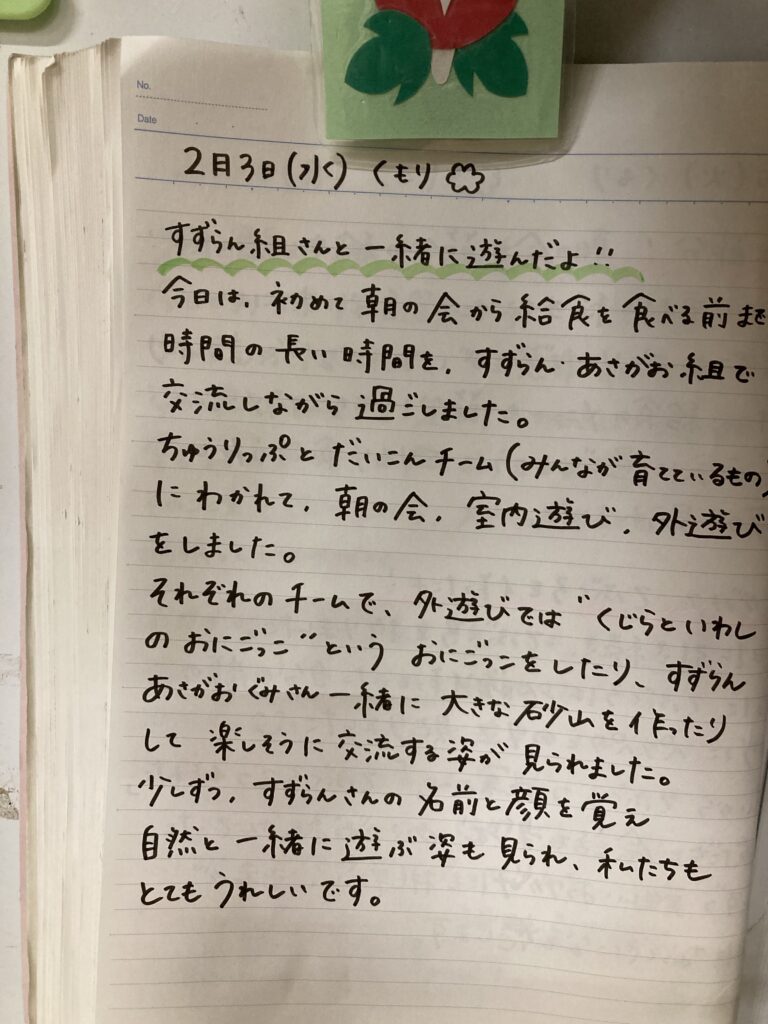 No.
Date
2月3日(水) くもり
すずらん組さんと一緒に遊んだよ!!
今日は、初めて朝の会から給食を食べる前まで
時間の長い時間を、すずらん・あさがお組で
交流しながら過ごしました。
ちゅうりっぷとだいこんチーム(みんなが育てているもの)
にわかれて、朝の会、室内遊び、外遊び
をしました。
それぞれのチームで、外遊びでは〝くじらといわし
のおにごっこ〟という おにごっこをしたり、すずらん
あさがおぐみさん一緒に大きな砂山を作ったり
して 楽しそうに交流する姿が見られました。
少しずつ、すずらんさんの名前と顔を覚え
自然と一緒に遊ぶ姿も見られ、私たちも
とてもうれしいです。